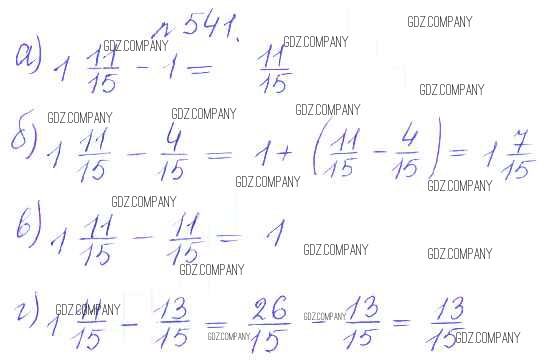 № 541.
GDZ.COMPANY
а) 1 11/15 - 1 = 11/15
GDZ.COMPANY GDZ.COMPANY
GDZ.COMPANY
GDZ.COMPANY GDZ.COMPANY GDZ.COMPANY
б) 1 11/15 - 4/15 = 1 + (11/15 - 4/15) = 1 7/15
GDZ.COMPANY GDZ.COMPANY
GDZ.COMPANY
в) 1 11/15 - 11/15 = 1
GDZ.COMPANY GDZ.COMPANY
GDZ.COMPANY
г) 1 11/15 - 13/15 = 26/15 - 13/15 = 13/15
GDZ.COMPANY GDZ.COMPANY
GDZ.COMPANY GDZ.COMPANY